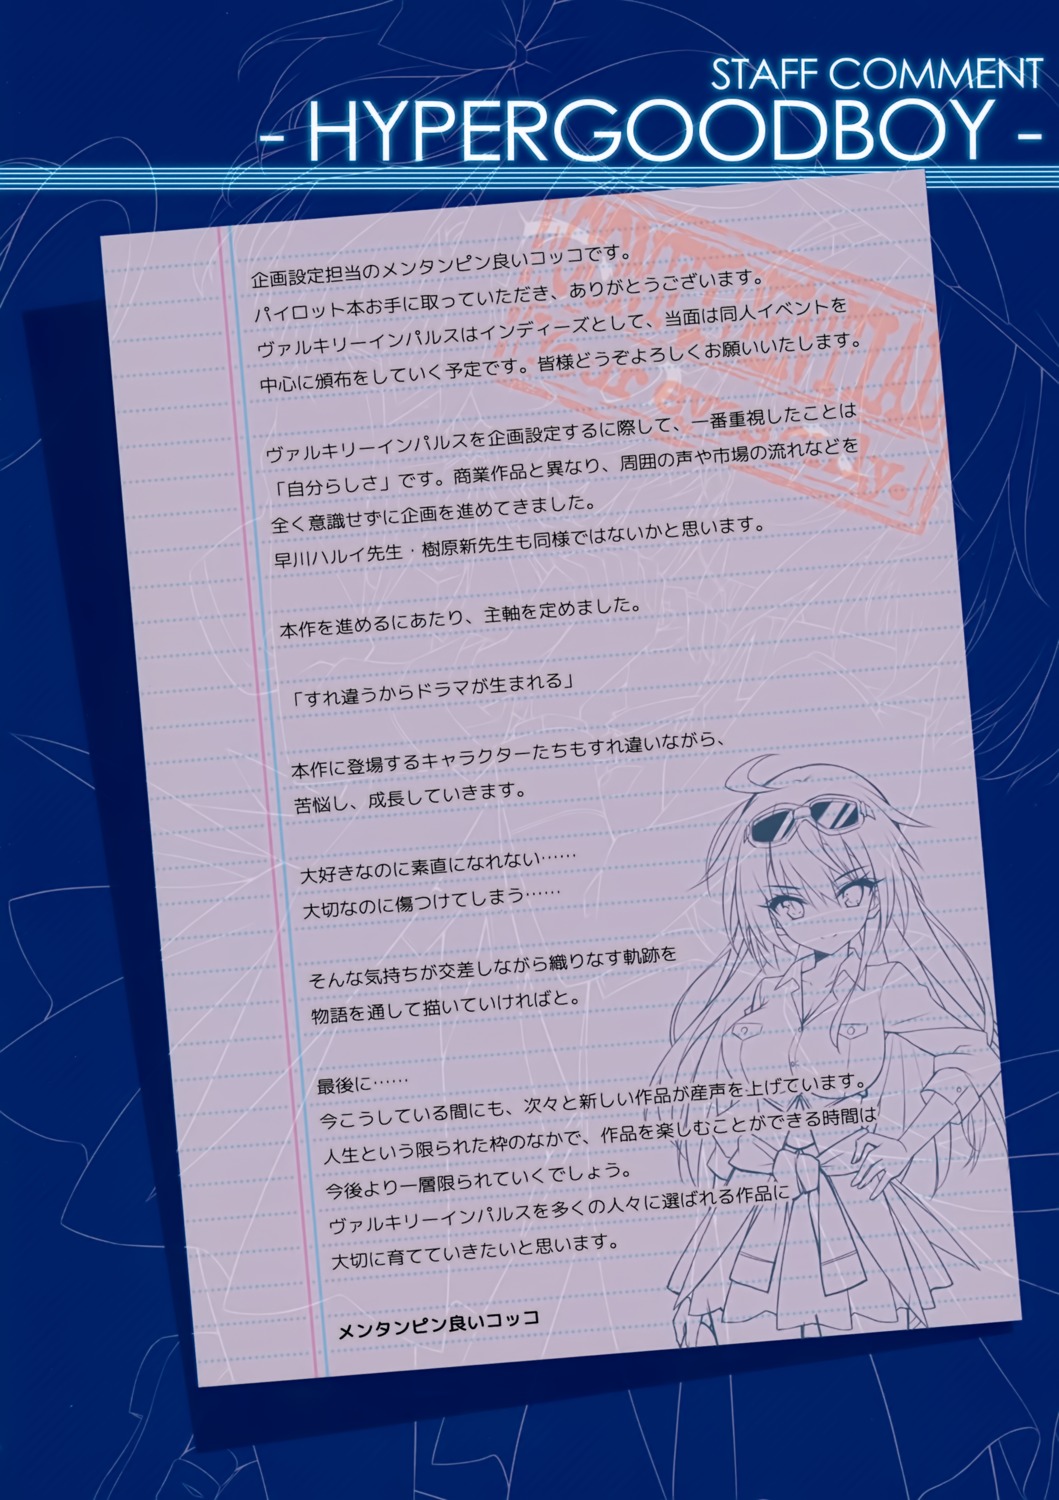 STAFF COMMENT
- HYPERGOODBOY -
企画設定担当のメンタンピン良いコッコです。
パイロット本お手に取っていただき、ありがとうございます。
ヴァルキリーインパルスはインディーズとして、当面は同人イベントを
中心に頒布をしていく予定です。皆様どうぞよろしくお願いいたします。
ヴァルキリーインパルスを企画設定するに際して、一番重視したことは
「自分らしさ」です。商業作品と異なり、周囲の声や市場の流れなどを
全く意識せずに企画を進めてきました。
早川ハルイ先生・樹原新先生も同様ではないかと思います。
本作を進めるにあたり、主軸を定めました。
「すれ違うからドラマが生まれる」
本作に登場するキャラクターたちもすれ違いながら、
苦悩し、成長していきます。
大好きなのに素直になれない……
大切なのに傷つけてしまう……
そんな気持ちが交差しながら織りなす軌跡を
物語を通して描いていければと。
最後に……
今こうしている間にも、次々と新しい作品が産声を上げています。
人生という限られた枠のなかで、作品を楽しむことができる時間は
今後より一層限られていくでしょう。
ヴァルキリーインパルスを多くの人々に選ばれる作品に
大切に育てていきたいと思います。
メンタンピン良いコッコ